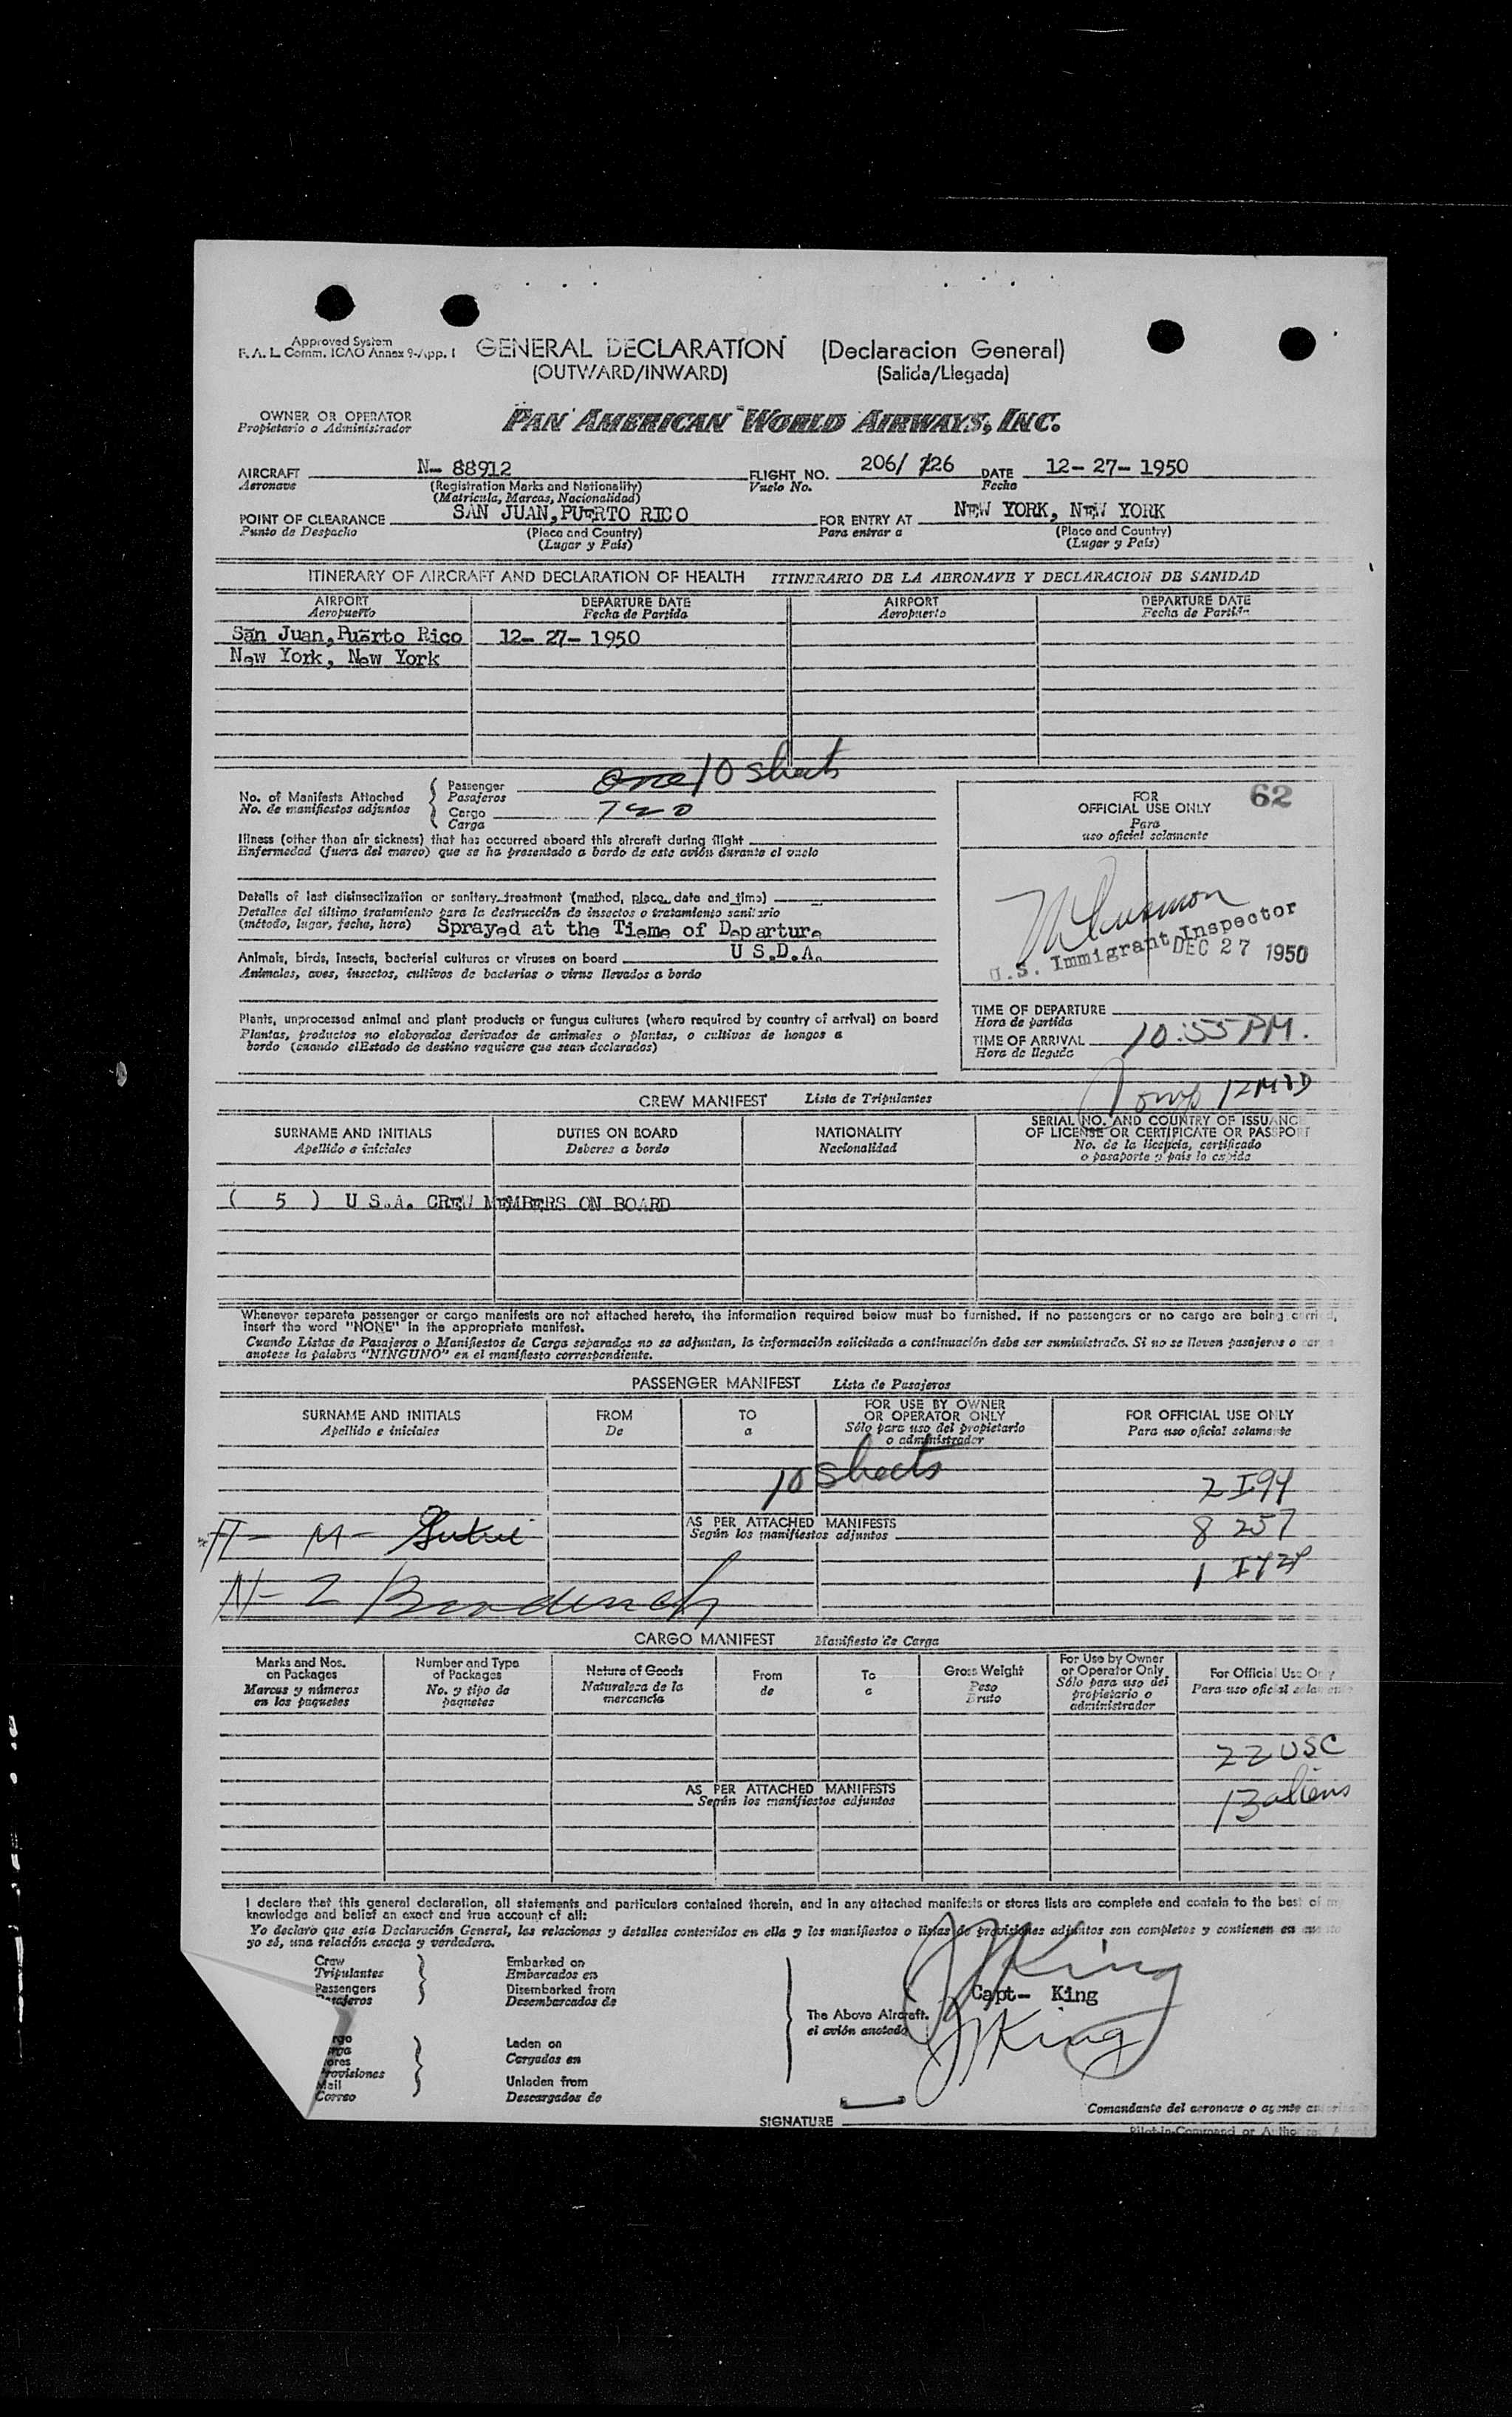 Approved System
F. A. L. Comm. ICAO Annex 9-App. 1
GENERAL DECLARATION (Declaracion General)
(OUTWARD/INWARD) (Salida/Llegada)
OWNER OR OPERATOR
Propietario o Administrador
PAN AMERICAN WORLD AIRWAYS, INC.
AIRCRAFT N- 88912 FLIGHT NO. 206/ 726 DATE 12- 27- 1950
Aeronave (Registration Marks and Nationality) Vuelo No. Fecha
(Matricula, Marcas, Nacionalidad)
POINT OF CLEARANCE SAN JUAN, PUERTO RICO FOR ENTRY AT NEW YORK, NEW YORK
Punto de Despacho (Place and Country) Para entrar a (Place and Country)
(Lugar y País) (Lugar y País)
ITINERARY OF AIRCRAFT AND DECLARATION OF HEALTH ITINERARIO DE LA AERONAVE Y DECLARACION DE SANIDAD
AIRPORT DEPARTURE DATE AIRPORT DEPARTURE DATE
Aeropuerto Fecha de Partida Aeropuerto Fecha de Partida
San Juan, Puerto Rico 12- 27- 1950
New York, New York
No. of Manifests Attached
No. de manifiestos adjuntos
Passenger one 10 sheets
Pasajeros
Cargo Two
Carga
Illness (other than air sickness) that has occurred aboard this aircraft during flight
Enfermedad (fuera del mareo) que se ha presentado a bordo de este avión durante el vuelo
Details of last disinsectization or sanitary treatment (method, place, date and time)
Detalles del último tratamiento para la destrucción de insectos o tratamiento sanitario
(método, lugar, fecha, hora) Sprayed at the Tieme of Departure
Animals, birds, insects, bacterial cultures or viruses on board U S.D.A.
Animales, aves, insectos, cultivos de bacterias o virus llevados a bordo
Plants, unprocessed animal and plant products or fungus cultures (where required by country of arrival) on board
Plantas, productos no elaborados derivados de animales o plantas, o cultivos de hongos a
bordo (cuando elEstado de destino requiere que sean declarados)
FOR 62
OFFICIAL USE ONLY
Para
uso oficial solamente
U.S. Immigrant Inspector
DEC 27 1950
TIME OF DEPARTURE
Hora de partida
TIME OF ARRIVAL 10:55 PM.
Hora de llegada
CREW MANIFEST Lista de Tripulantes
SURNAME AND INITIALS DUTIES ON BOARD NATIONALITY SERIAL NO. AND COUNTRY OF ISSUANC
OF LICENSE OR CERTIFICATE OR PASSPORT
Apellido e iniciales Deberes a bordo Nacionalidad No. de la licencia, certificado
o pasaporte y país lo expide
( 5 ) U S.A. CREW MEMBERS ON BOARD
Whenever separate passenger or cargo manifests are not attached hereto, the information required below must be furnished. If no passengers or no cargo are being carried,
insert the word "NONE" in the appropriate manifest.
Cuando Listas de Pasajeros o Manifiestos de Carga separados no se adjuntan, la información solicitada a continuación debe ser suministrada. Si no se lleven pasajeros o car
anotese la palabra "NINGUNO" en el manifiesto correspondiente.
PASSENGER MANIFEST Lista de Pasajeros
SURNAME AND INITIALS FROM TO FOR USE BY OWNER
OR OPERATOR ONLY FOR OFFICIAL USE ONLY
Apellido e iniciales De a Sólo para uso del propietario
o administrador Para uso oficial solamente
10 sheets
2 I94
AS PER ATTACHED MANIFESTS
Según los manifiestos adjuntos
8 257
CARGO MANIFEST Manifiesto de Carga
Marks and Nos.
on Packages
Marcas y números
en los paquetes
Number and Type
of Packages
No. y tipo de
paquetes
Nature of Goods
Naturaleza de la
mercancía
From
de
To
a
Gross Weight
Peso
Bruto
For Use by Owner
or Operator Only
Sólo para uso del
propietario o
administrador
For Official Use Only
Para uso oficial solamente
22 USC
AS PER ATTACHED MANIFESTS
Según los manifiestos adjuntos
13 aliens
I declare that this general declaration, all statements and particulars contained therein, and in any attached manifests or stores lists are complete and contain to the best of my
knowledge and belief an exact and true account of all:
Yo declaro que esta Declaración General, las relaciones y detalles contenidos en ella y los manifiestos o listas de provisiones adjuntos son completos y contienen en cuanto
yo sé, una relación exacta y verdadera.
Crew
Tripulantes
Passengers
Pasajeros
Embarked on
Embarcados en
Disembarked from
Desembarcados de
rgo
rga
ores
rovisiones
Mail
Correo
Laden on
Cargados en
Unladen from
Descargados de
The Above Aircraft.
el avión anotado
JJKing
Capt- King
JJKing
SIGNATURE
Comandante del aeronave o agente autori
Pilot-in-Command or Autho